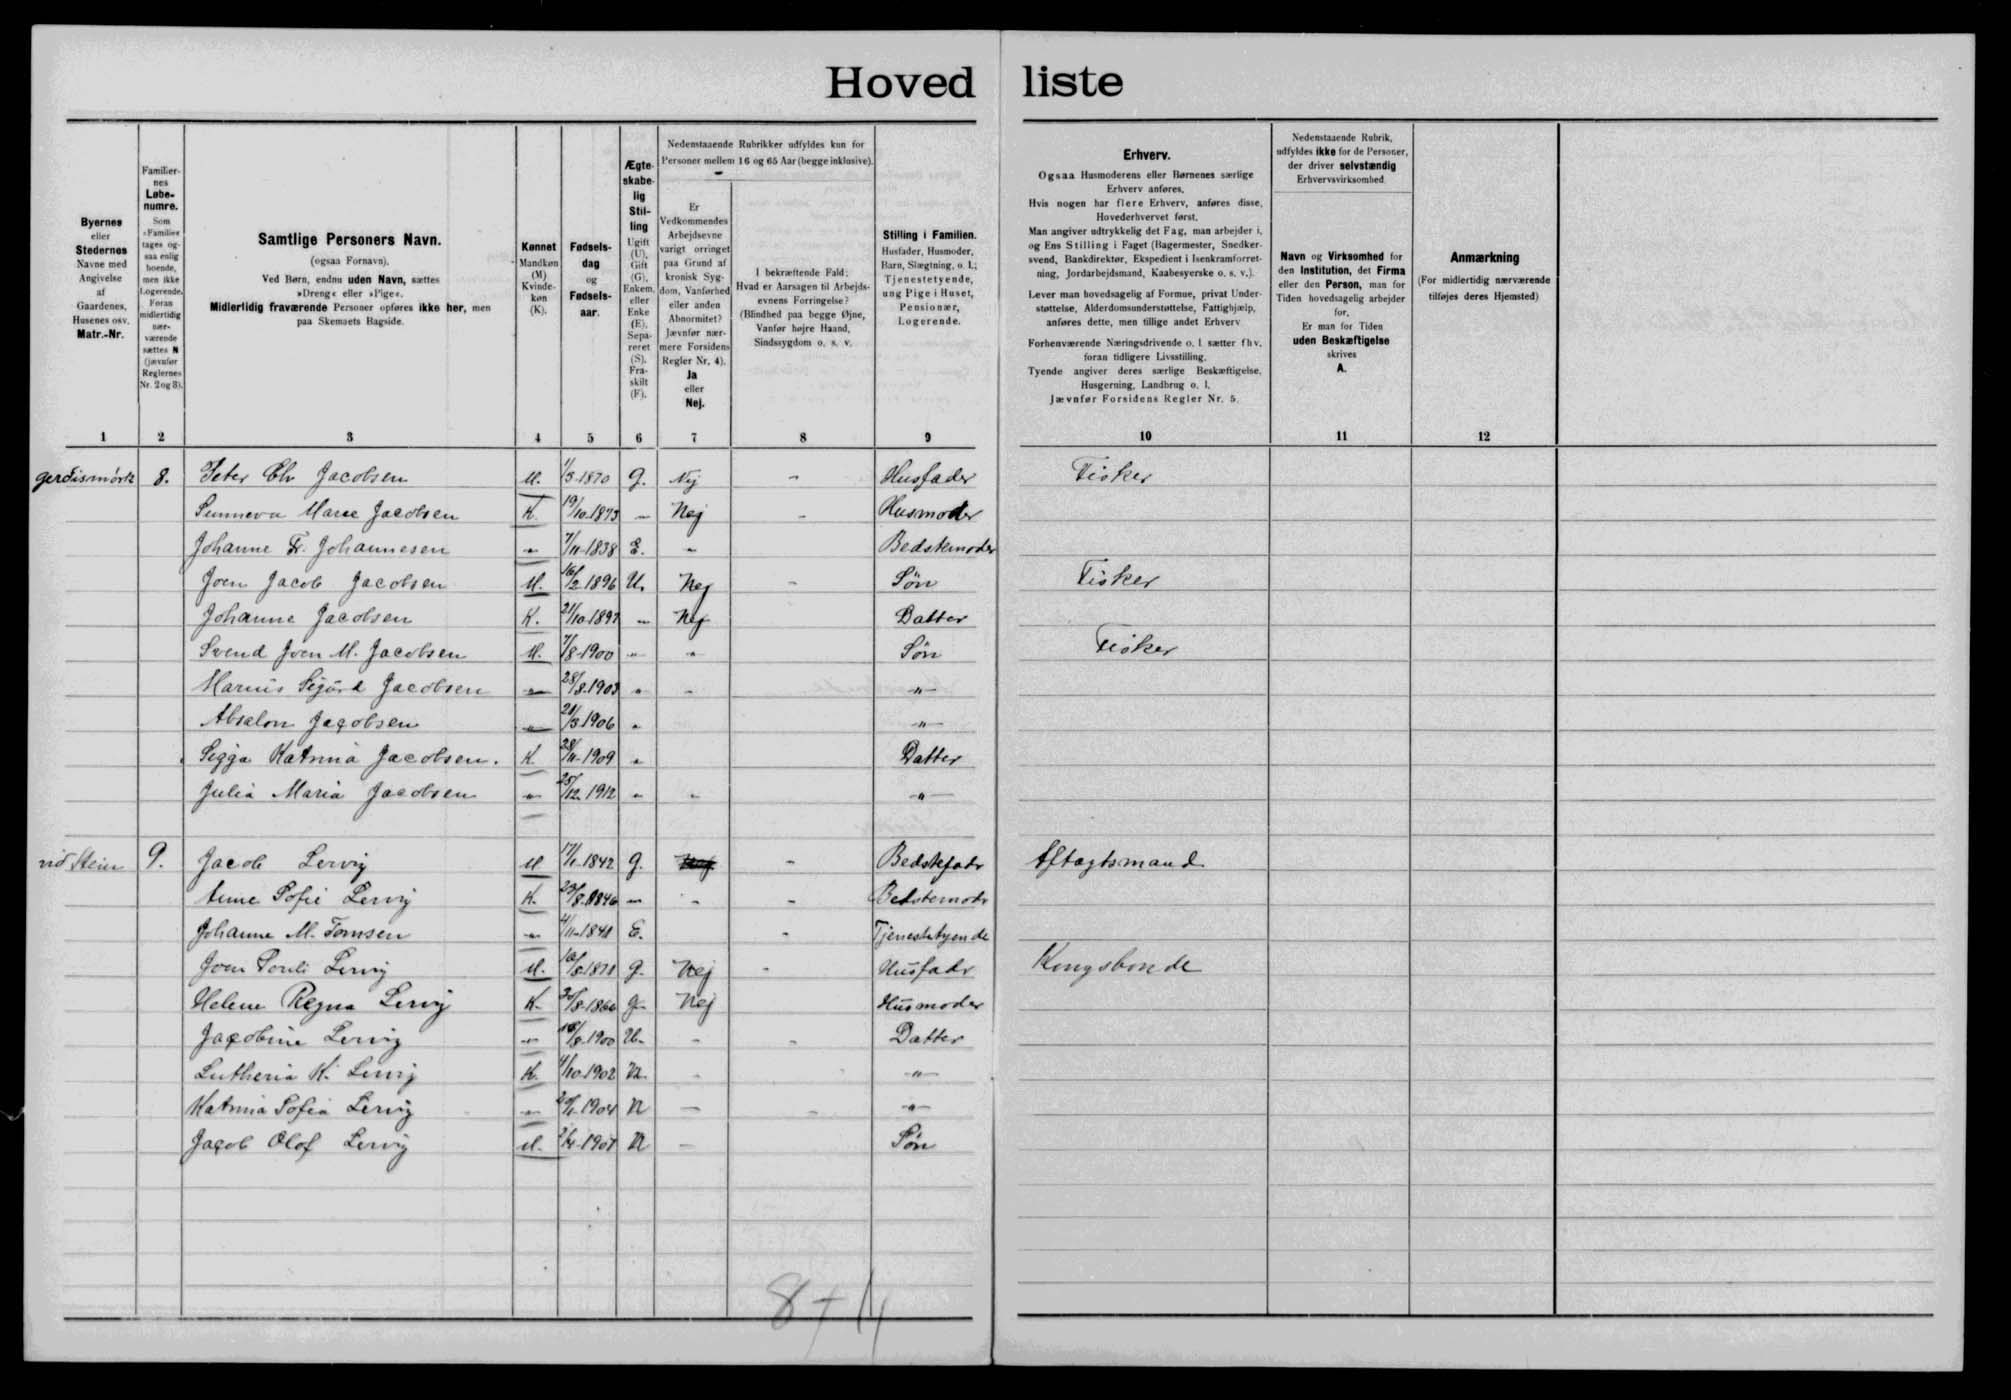 Hoved liste
Byernes
eller
Stedernes
Navne med
Angivelse
af
Gaardenes,
Husenes osv.
Matr.-Nr.
Familier-
nes
Løbe-
numre.
Som
»Familie«
tages og-
saa enlig
boende,
men ikke
Logerende.
Foran
midlertidig
nær-
værende
sættes N
(jævnfør
Reglernes
Nr. 2 og 3).
Samtlige Personers Navn.
(ogsaa Fornavn).
Ved Børn, endnu uden Navn, sættes
»Dreng« eller »Pige«.
Midlertidig fraværende Personer opføres ikke her, men
paa Skemaets Bagside.
Kønnet
Mandkøn
(M)
Kvinde-
køn
(K).
Fødsels-
dag
og
Fødsels-
aar.
Ægte-
skabe-
lig
Stil-
ling
Ugift
(U),
Gift
(G),
Enkem.
eller
Enke
(E),
Sepa-
reret
(S),
Fra-
skilt
(F).
Nedenstaaende Rubrikker udfyldes kun for
Personer mellem 16 og 65 Aar (begge inklusive).
Er
Vedkommendes
Arbejdsevne
varigt forringet
paa Grund af
kronisk Syg-
dom, Vanførhed
eller anden
Abnormitet?
Jævnfør nær-
mere Forsidens
Regler Nr. 4).
Ja
eller
Nej.
I bekræftende Fald:
Hvad er Aarsagen til Arbejds-
evnens Forringelse?
(Blindhed paa begge Øjne,
Vanfør højre Haand,
Sindssygdom o. s. v.
Stilling i Familien.
Husfader, Husmoder,
Barn, Slægtning, o. l.;
Tjenestetyende,
ung Pige i Huset,
Pensionær,
Logerende.
Erhverv.
Ogsaa Husmoderens eller Børnenes særlige
Erhverv anføres.
Hvis nogen har flere Erhverv, anføres disse,
Hovederhvervet først.
Man angiver udtrykkelig det Fag, man arbejder i,
og Ens Stilling i Faget (Bagermester, Snedker-
svend, Bankdirektør, Ekspedient i Isenkramforret-
ning, Jordarbejdsmand, Kaabesyerske o. s. v.).
Lever man hovedsagelig af Formue, privat Under-
støttelse, Alderdomsunderstøttelse, Fattighjælp,
anføres dette, men tillige andet Erhverv
Forhenværende Næringsdrivende o. l. sætter fhv.
foran tidligere Livsstilling.
Tyende angiver deres særlige Beskæftigelse,
Husgerning, Landbrug o. l.
Jævnfør Forsidens Regler Nr. 5.
Nedenstaaende Rubrik,
udfyldes ikke for de Personer,
der driver selvstændig
Erhvervsvirksomhed.
Navn og Virksomhed for
den Institution, det Firma
eller den Person, man for
Tiden hovedsagelig arbejder
for,
Er man for Tiden
uden Beskæftigelse
skrives
A.
Anmærkning
(For midlertidig nærværende
tilføjes deres Hjemsted)
1 2 3 4 5 6 7 8 9 10 11 12
8. Peter Chr Jacobsen M. 1/3-1870 G. Nej - Husfader Fisker
Sunneva Marie Jacobsen K. 19/10-1873 - Nej - Husmoder
Johanne Fr. Johannesen -"- 7/11-1838 E. -"- Bedstemoder
Joen Jacob Jacobsen M. 16/2-1896 U. Nej - Søn Fisker
Johanne Jacobsen K. 21/10-1897 -"- Nej Datter
Svend Joen M. Jacobsen M. 7/8-1900 -"- -"- Søn Fisker
Marius Sigurd Jacobsen -"- 28/8-1903 " - -"-
Absalon Jacobsen -"- 21/3-1906 " -"-
Sigga Katrina Jacobsen. K 28/11-1909 " Datter
Julia Maria Jacobsen -"- 25/12 1912 " - -"-
við Stein 9. Jacob Lervig M 17/1-1842 G. - Bedstefadr Aftagtsmand
Anne Sofie Lervig K. -"- - - Bedstemodr
Johanne M. Tomsen -"- E. - Tjenestetyende
Joen Pouli Lervig M. G. Nej - Husfadr Kongsbonde
Helene Regna Lervig K. G. Nej Husmoder
Jacobine Lervig -"- U. - - Datter
Lutheria K. Lervig K. 4/10-1902 U. - -"-
Katrina Sofia Lervig -"- U - - -"-
Jacob Olof Lervig M. U - Søn
8+11